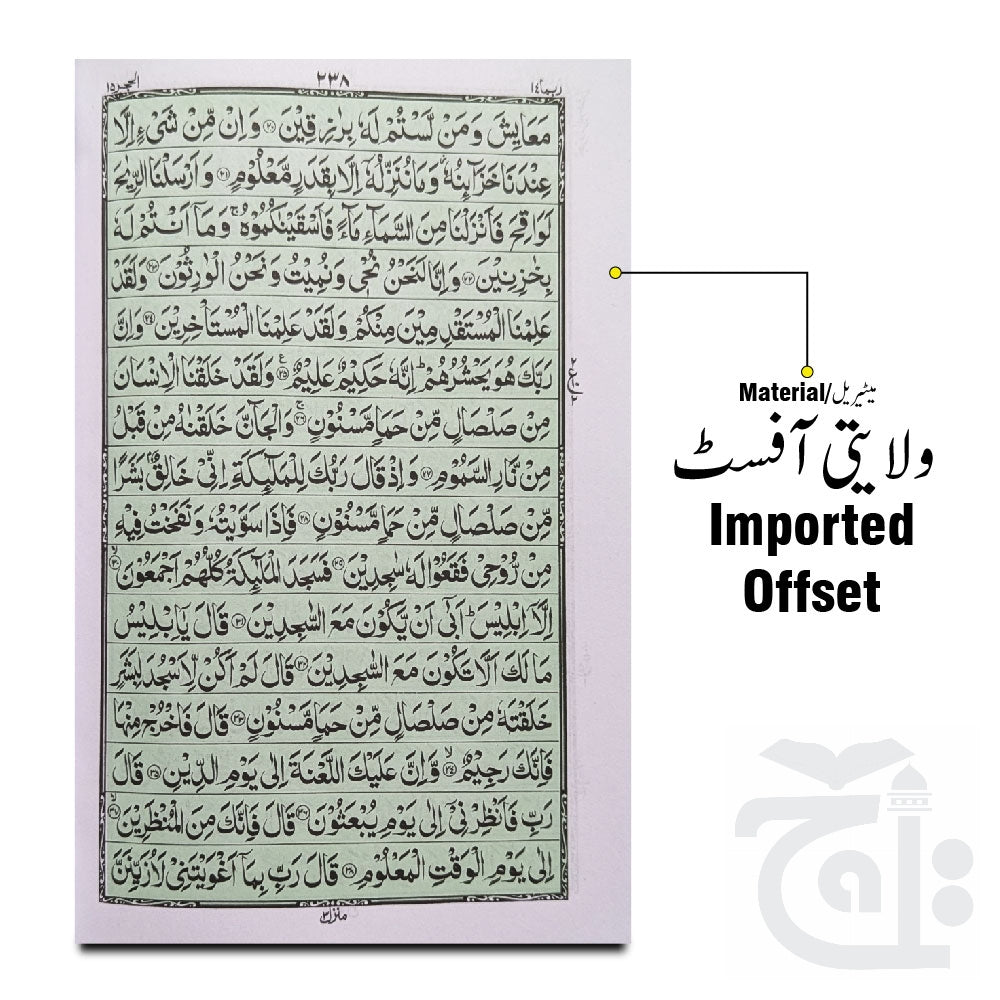 ربما ١٤
٢٣٨
الحجر ١٥
مَعَايِشَ وَمَنْ لَّسْتُمْ لَهٗ بِرٰزِقِيْنَ ﴿٢٠﴾ وَاِنْ مِّنْ شَىْءٍ اِلَّا
عِنْدَنَا خَزَآئِنُهٗ وَمَا نُنَزِّلُهٗۤ اِلَّا بِقَدَرٍ مَّعْلُوْمٍ ﴿٢١﴾ وَاَرْسَلْنَا الرِّيٰحَ
لَوَاقِحَ فَاَنْزَلْنَا مِنَ السَّمَآءِ مَآءً فَاَسْقَيْنٰكُمُوْهُ ۚ وَمَاۤ اَنْتُمْ لَهٗ
بِخٰزِنِيْنَ ﴿٢٢﴾ وَاِنَّا لَنَحْنُ نُحْىٖ وَنُمِيْتُ وَنَحْنُ الْوٰرِثُوْنَ ﴿٢٣﴾ وَلَقَدْ
عَلِمْنَا الْمُسْتَقْدِمِيْنَ مِنْكُمْ وَلَقَدْ عَلِمْنَا الْمُسْتَاْخِرِيْنَ ﴿٢٤﴾ وَاِنَّ
رَبَّكَ هُوَ يَحْشُرُهُمْ ؕ اِنَّهٗ حَكِيْمٌ عَلِيْمٌ ﴿٢٥﴾ وَلَقَدْ خَلَقْنَا الْاِنْسَانَ
مِنْ صَلْصَالٍ مِّنْ حَمَاٍ مَّسْنُوْنٍ ﴿٢٦﴾ وَالْجَآنَّ خَلَقْنٰهُ مِنْ قَبْلُ
مِنْ نَّارِ السَّمُوْمِ ﴿٢٧﴾ وَاِذْ قَالَ رَبُّكَ لِلْمَلٰٓئِكَةِ اِنِّىْ خَالِقٌۢ بَشَرًا
مِّنْ صَلْصَالٍ مِّنْ حَمَاٍ مَّسْنُوْنٍ ﴿٢٨﴾ فَاِذَا سَوَّيْتُهٗ وَنَفَخْتُ فِيْهِ
مِنْ رُّوْحِىْ فَقَعُوْا لَهٗ سٰجِدِيْنَ ﴿٢٩﴾ فَسَجَدَ الْمَلٰٓئِكَةُ كُلُّهُمْ اَجْمَعُوْنَ ﴿٣٠﴾
اِلَّاۤ اِبْلِيْسَ ؕ اَبٰٓى اَنْ يَّكُوْنَ مَعَ السّٰجِدِيْنَ ﴿٣١﴾ قَالَ يٰۤاِبْلِيْسُ
مَا لَكَ اَلَّا تَكُوْنَ مَعَ السّٰجِدِيْنَ ﴿٣٢﴾ قَالَ لَمْ اَكُنْ لِّاَسْجُدَ لِبَشَرٍ
خَلَقْتَهٗ مِنْ صَلْصَالٍ مِّنْ حَمَاٍ مَّسْنُوْنٍ ﴿٣٣﴾ قَالَ فَاخْرُجْ مِنْهَا
فَاِنَّكَ رَجِيْمٌ ﴿٣٤﴾ وَّاِنَّ عَلَيْكَ اللَّعْنَةَ اِلٰى يَوْمِ الدِّيْنِ ﴿٣٥﴾ قَالَ
رَبِّ فَاَنْظِرْنِىْۤ اِلٰى يَوْمِ يُبْعَثُوْنَ ﴿٣٦﴾ قَالَ فَاِنَّكَ مِنَ الْمُنْظَرِيْنَ ﴿٣٧﴾
اِلٰى يَوْمِ الْوَقْتِ الْمَعْلُوْمِ ﴿٣٨﴾ قَالَ رَبِّ بِمَاۤ اَغْوَيْتَنِىْ لَاُزَيِّنَنَّ
منزل ٣
Material/میٹیریل
ولایتی آفسٹ
Imported
Offset